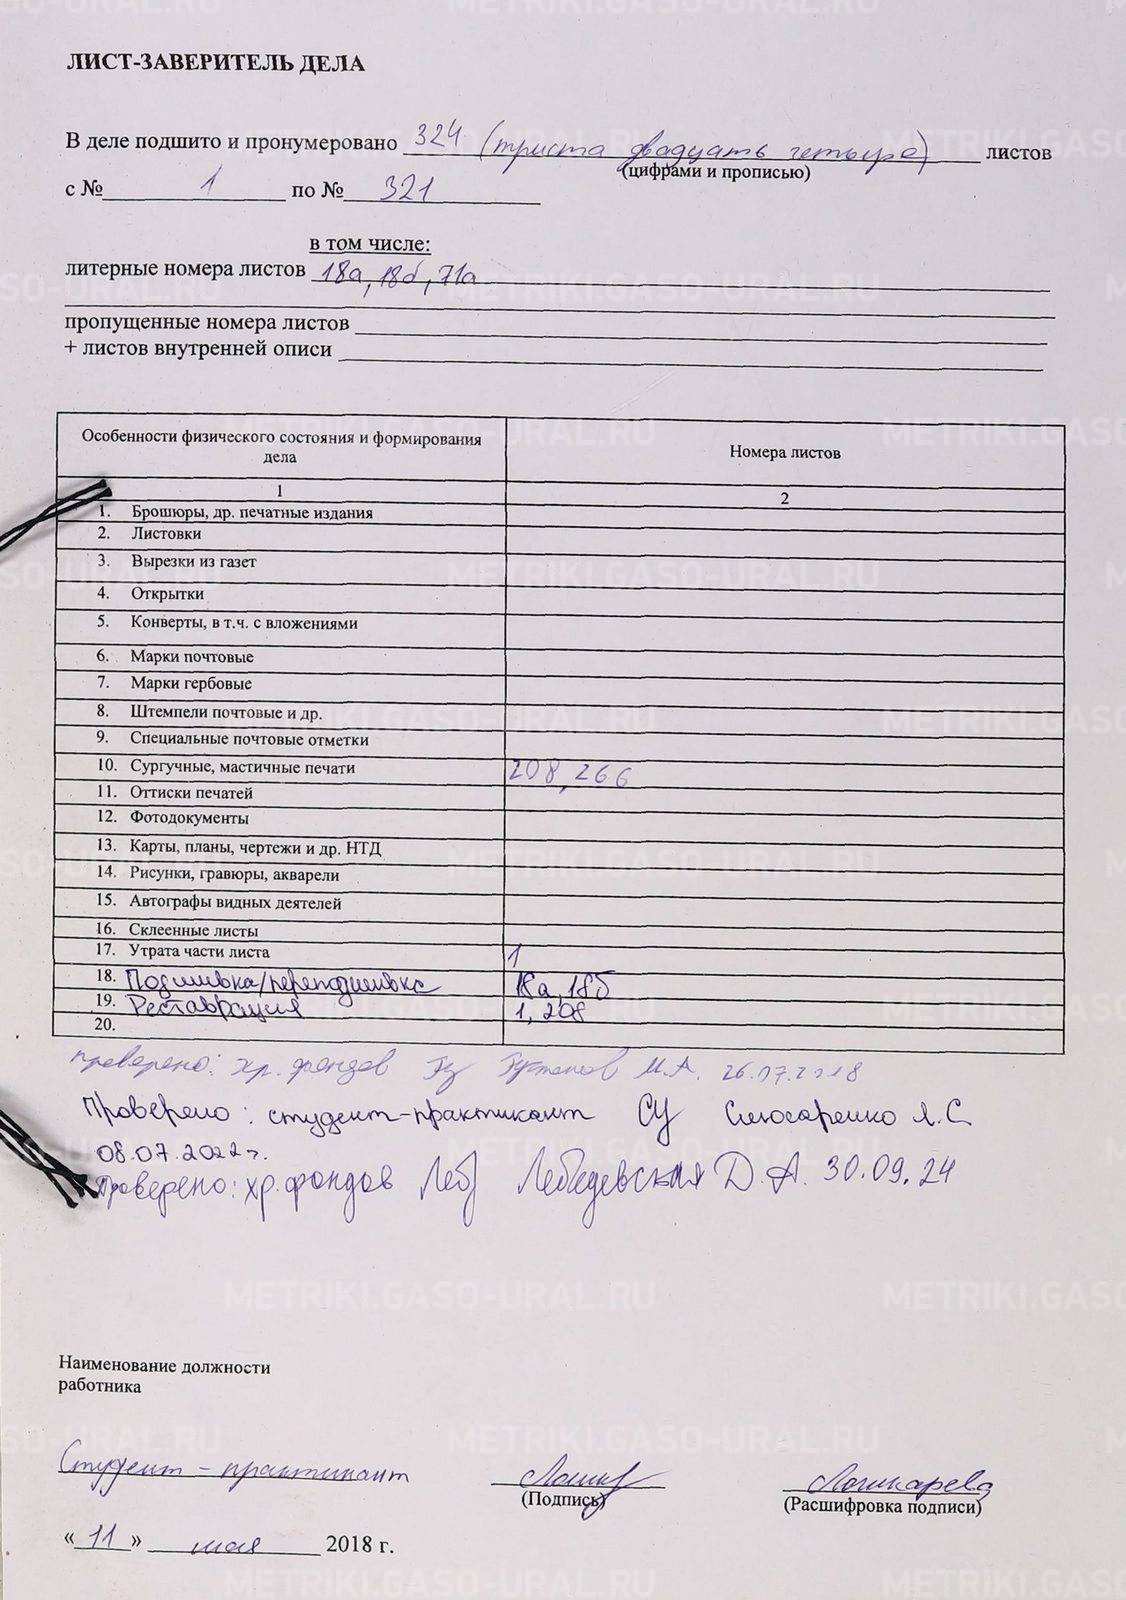 ЛИСТ-ЗАВЕРИТЕЛЬ ДЕЛА
В деле подшито и пронумеровано 324 (триста двадцать четыре) листов
(цифрами и прописью)
с № 1 по № 321
в том числе:
литерные номера листов 18а, 18б, 71а
пропущенные номера листов
+ листов внутренней описи
Особенности физического состояния и формирования дела Номера листов
1 2
1. Брошюры, др. печатные издания
2. Листовки
3. Вырезки из газет
4. Открытки
5. Конверты, в т.ч. с вложениями
6. Марки почтовые
7. Марки гербовые
8. Штемпели почтовые и др.
9. Специальные почтовые отметки
10. Сургучные, мастичные печати 208, 266
11. Оттиски печатей
12. Фотодокументы
13. Карты, планы, чертежи и др. НТД
14. Рисунки, гравюры, акварели
15. Автографы видных деятелей
16. Склеенные листы
17. Утрата части листа 1
18. Подшивка/переподшивка 18а, 18б
19. Реставрация 1, 208
20.
проверено: хр. фондов М.А. 26.07.2018
Проверено: студент-практикант СУ Слюсаренко Л.С
08.07.2022г.
Проверено: хр. фондов Леб Лебедевская Д.А. 30.09.24
Наименование должности
работника
Студент - практикант Лошкарева
(Подпись) (Расшифровка подписи)
« 11 » мая 2018 г.
METRIKI.GASO-URAL.RU